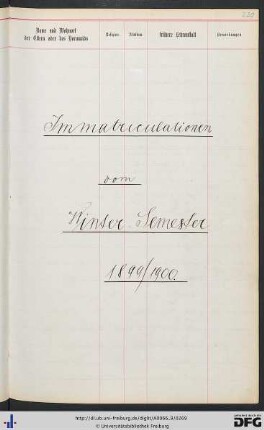 Name und Wohnort
der Eltern oder des Vormundes
Religion.
Studium
frühere Lehranstalt
Bemerkungen
Immatriculationen
vom
Winter-Semester
1899/1900.
http://dl.ub.uni-freiburg.de/diglit/A0066_9/0269
© Universitätsbibliothek Freiburg
gefördert durch die
DFG